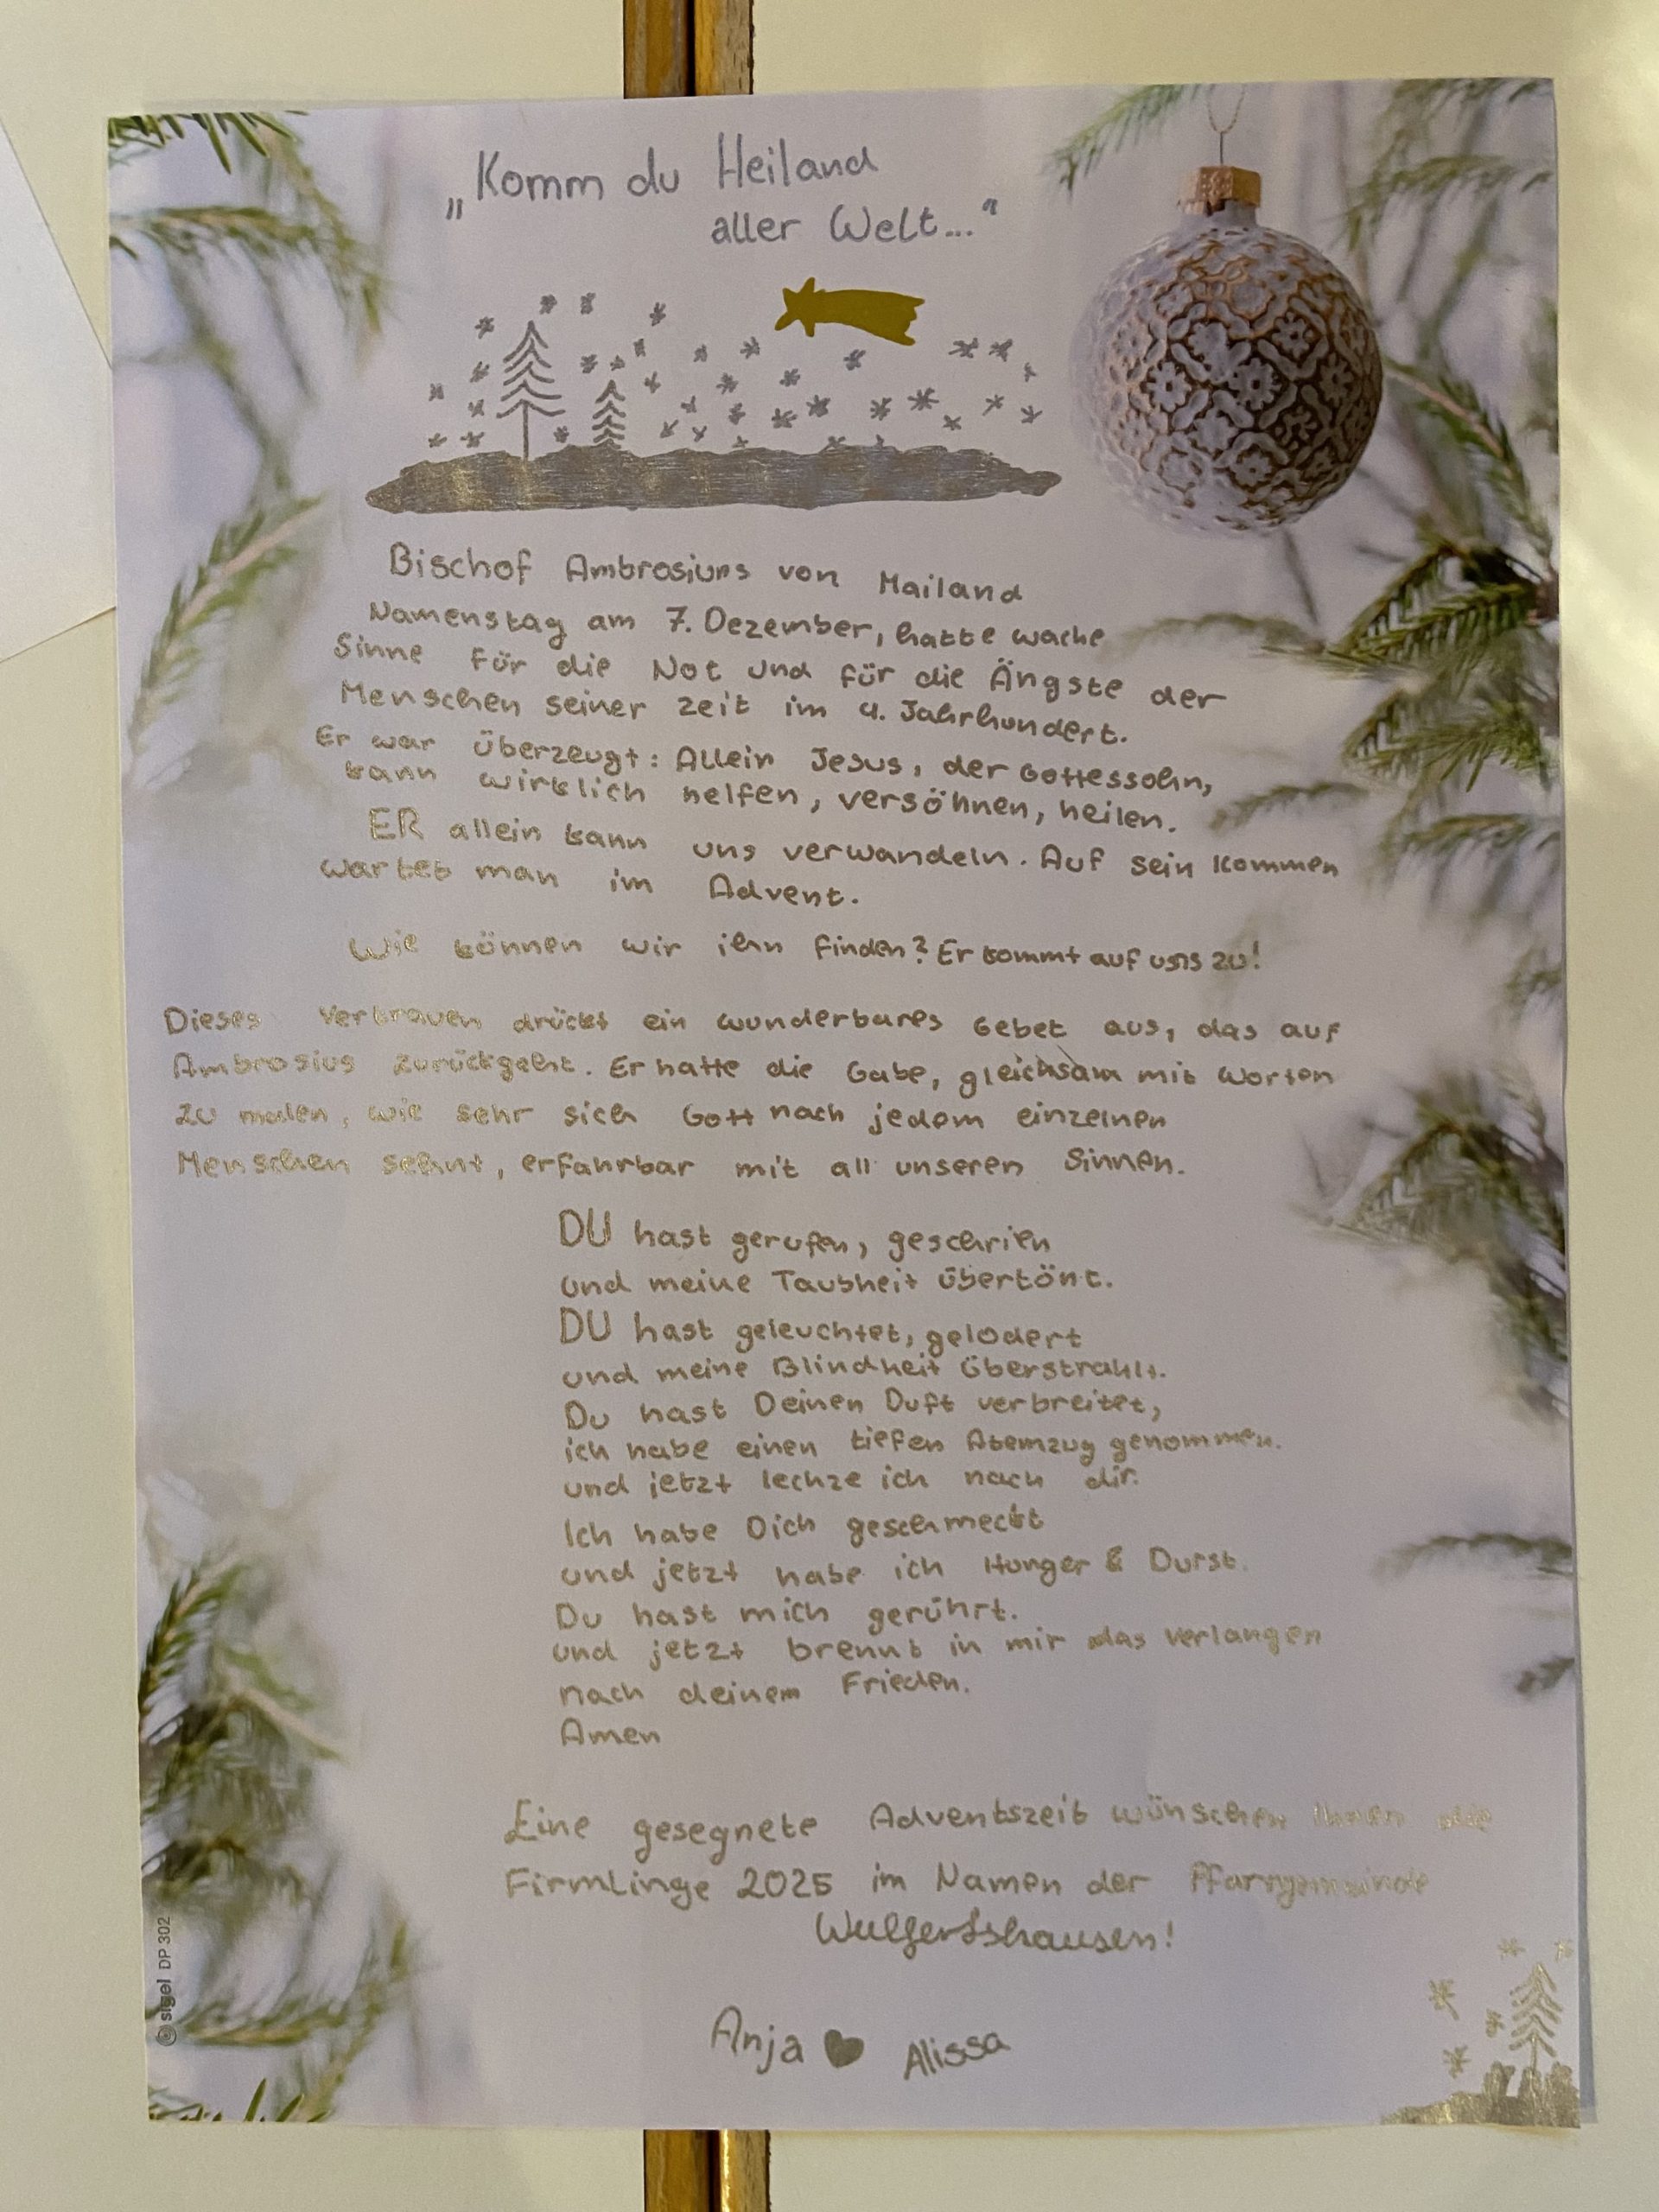 „Komm du Heiland
aller Welt..."
Bischof Ambrosius von Mailand
Namenstag am 7. Dezember, hatte wache
Sinne für die Not und für die Ängste der
Menschen seiner Zeit im 4. Jahrhundert.
Er war überzeugt: Allein Jesus, der Gottessohn,
kann wirklich helfen, versöhnen, heilen.
ER allein kann uns verwandeln. Auf sein Kommen
wartet man im Advent.
Wie können wir ihn finden? Er kommt auf uns zu!
Dieses Vertrauen drückt ein wunderbares Gebet aus, das auf
Ambrosius zurückgeht. Er hatte die Gabe, gleichsam mit Worten
zu malen, wie sehr sich Gott nach jedem einzelnen
Menschen sehnt, erfahrbar mit all unseren Sinnen.
DU hast gerufen, geschrien
und meine Taubheit übertönt.
DU hast geleuchtet, gelodert
und meine Blindheit überstrahlt.
Du hast Deinen Duft verbreitet,
ich habe einen tiefen Atemzug genommen.
und jetzt lechze ich nach dir.
Ich habe Dich geschmeckt
und jetzt habe ich Hunger & Durst.
Du hast mich gerührt.
und jetzt brennt in mir das Verlangen
nach deinem Frieden.
Amen
Eine gesegnete Adventszeit wünschen Ihnen die
Firmlinge 2025 im Namen der Pfarrgemeinde
Wulfertshausen!
Anja ♥ Alissa
© sigel DP 302